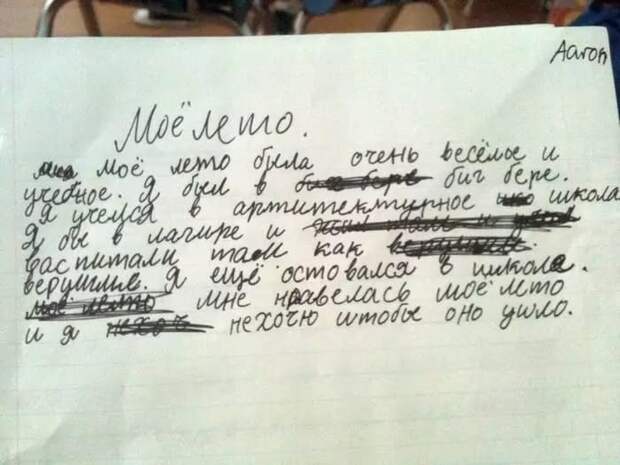 Aaron
Моё лето.
моё лето была очень весёлое и
учебное. Я был в биг бере.
Я учелся в артитектурное школа
Я бы в лагире и
распитали там как
верушие. Я ещё оставался в школе.
мне нравелась моё лето
и я нехочю штобы оно ушло.